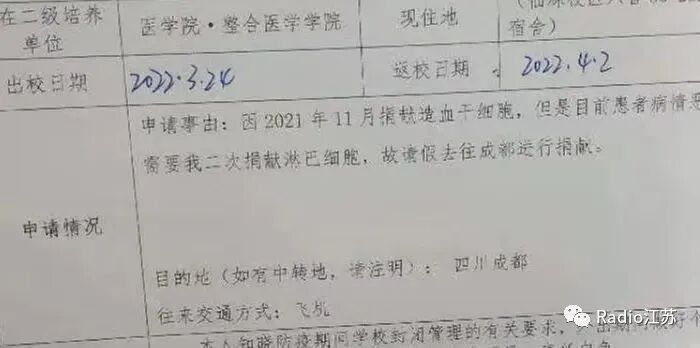 在二级培养
单位
医学院·整合医学学院
现住地
宿舍）
出校日期
2022.3.24
返校日期
2022.4.2
申请事由：因2021年11月捐献造血干细胞，但是目前患者病情
需要我二次捐献淋巴细胞，故请假去往成都进行捐献。
申请情况
目的地（如有中转地，请注明）：四川成都
往来交通方式：飞机
本人知晓防疫期间学校封闭管理的有关要求，
Radio江苏